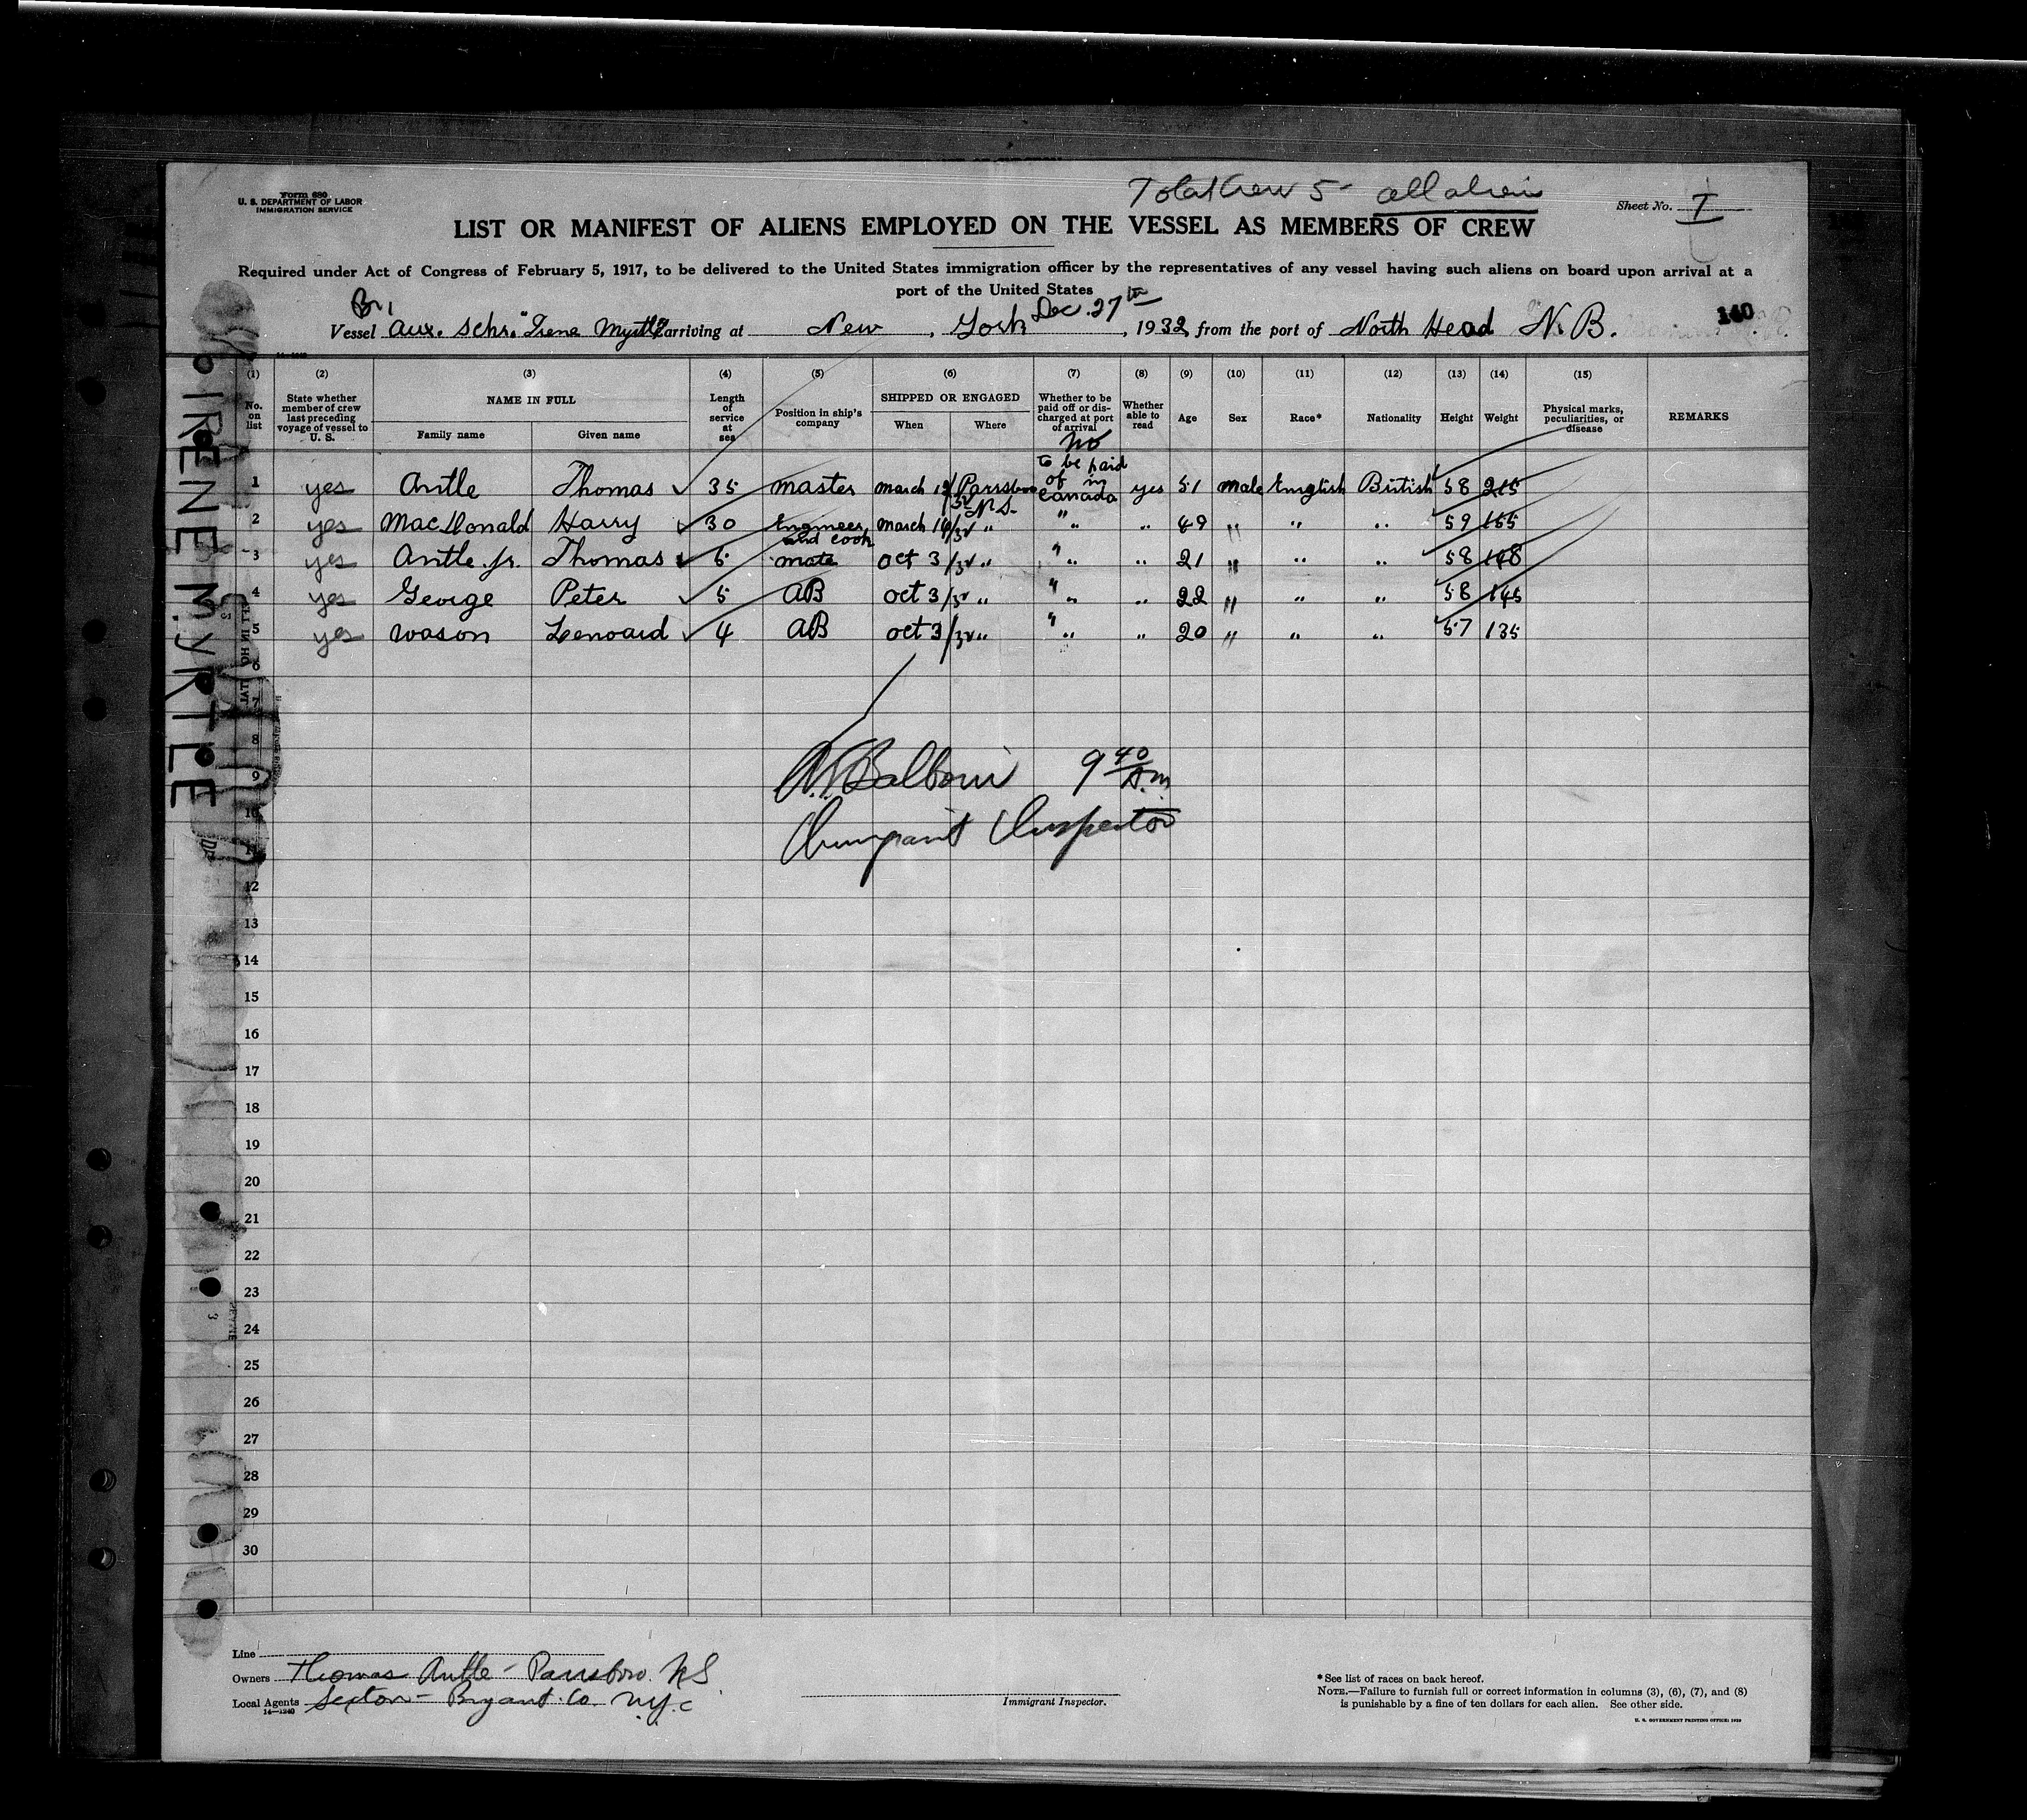 Form 680
U. S. DEPARTMENT OF LABOR
IMMIGRATION SERVICE
Total Crew 5 - all alien
Sheet No. I
LIST OR MANIFEST OF ALIENS EMPLOYED ON THE VESSEL AS MEMBERS OF CREW
Required under Act of Congress of February 5, 1917, to be delivered to the United States immigration officer by the representatives of any vessel having such aliens on board upon arrival at a
port of the United States
Br.
Vessel Aux. Schr. "Irene Myrtle" arriving at New York Dec. 27th, 1932, from the port of North Head N. B.
140
(1) (2) (3) (4) (5) (6) (7) (8) (9) (10) (11) (12) (13) (14) (15)
No. on list State whether member of crew last preceding voyage of vessel to U. S. NAME IN FULL Family name Given name Length of service at sea Position in ship's company SHIPPED OR ENGAGED When Where Whether to be paid off or discharged at port of arrival Whether able to read Age Sex Race* Nationality Height Weight Physical marks, peculiarities, or disease REMARKS
No
1 yes Antle Thomas 35 master march 12/32 Parrsboro N.S. to be paid of in Canada yes 51 male English British 58 215
2 yes MacDonald Harry 30 Engineer and cook march 14/32 " " " 49 " " " 59 155
3 yes Antle Jr. Thomas 6 mate oct 3/32 " " " 21 " " " 58 148
4 yes George Peter 5 AB oct 3/32 " " " 22 " " " 58 145
5 yes Wason Lenoard 4 AB oct 3/32 " " " 20 " " " 57 135
6
7
8
9
10
11
12
13
14
15
16
17
18
19
20
21
22
23
24
25
26
27
28
29
30
9 40 A.m.
Immigrant Inspector
IRENE MyRTLE
Line
Owners Thomas Antle - Parrsboro. N S
Local Agents Sexton - Bryant Co. N.Y.C
14—1240
Immigrant Inspector.
*See list of races on back hereof.
NOTE.—Failure to furnish full or correct information in columns (3), (6), (7), and (8)
is punishable by a fine of ten dollars for each alien. See other side.
U. S. GOVERNMENT PRINTING OFFICE: 1929